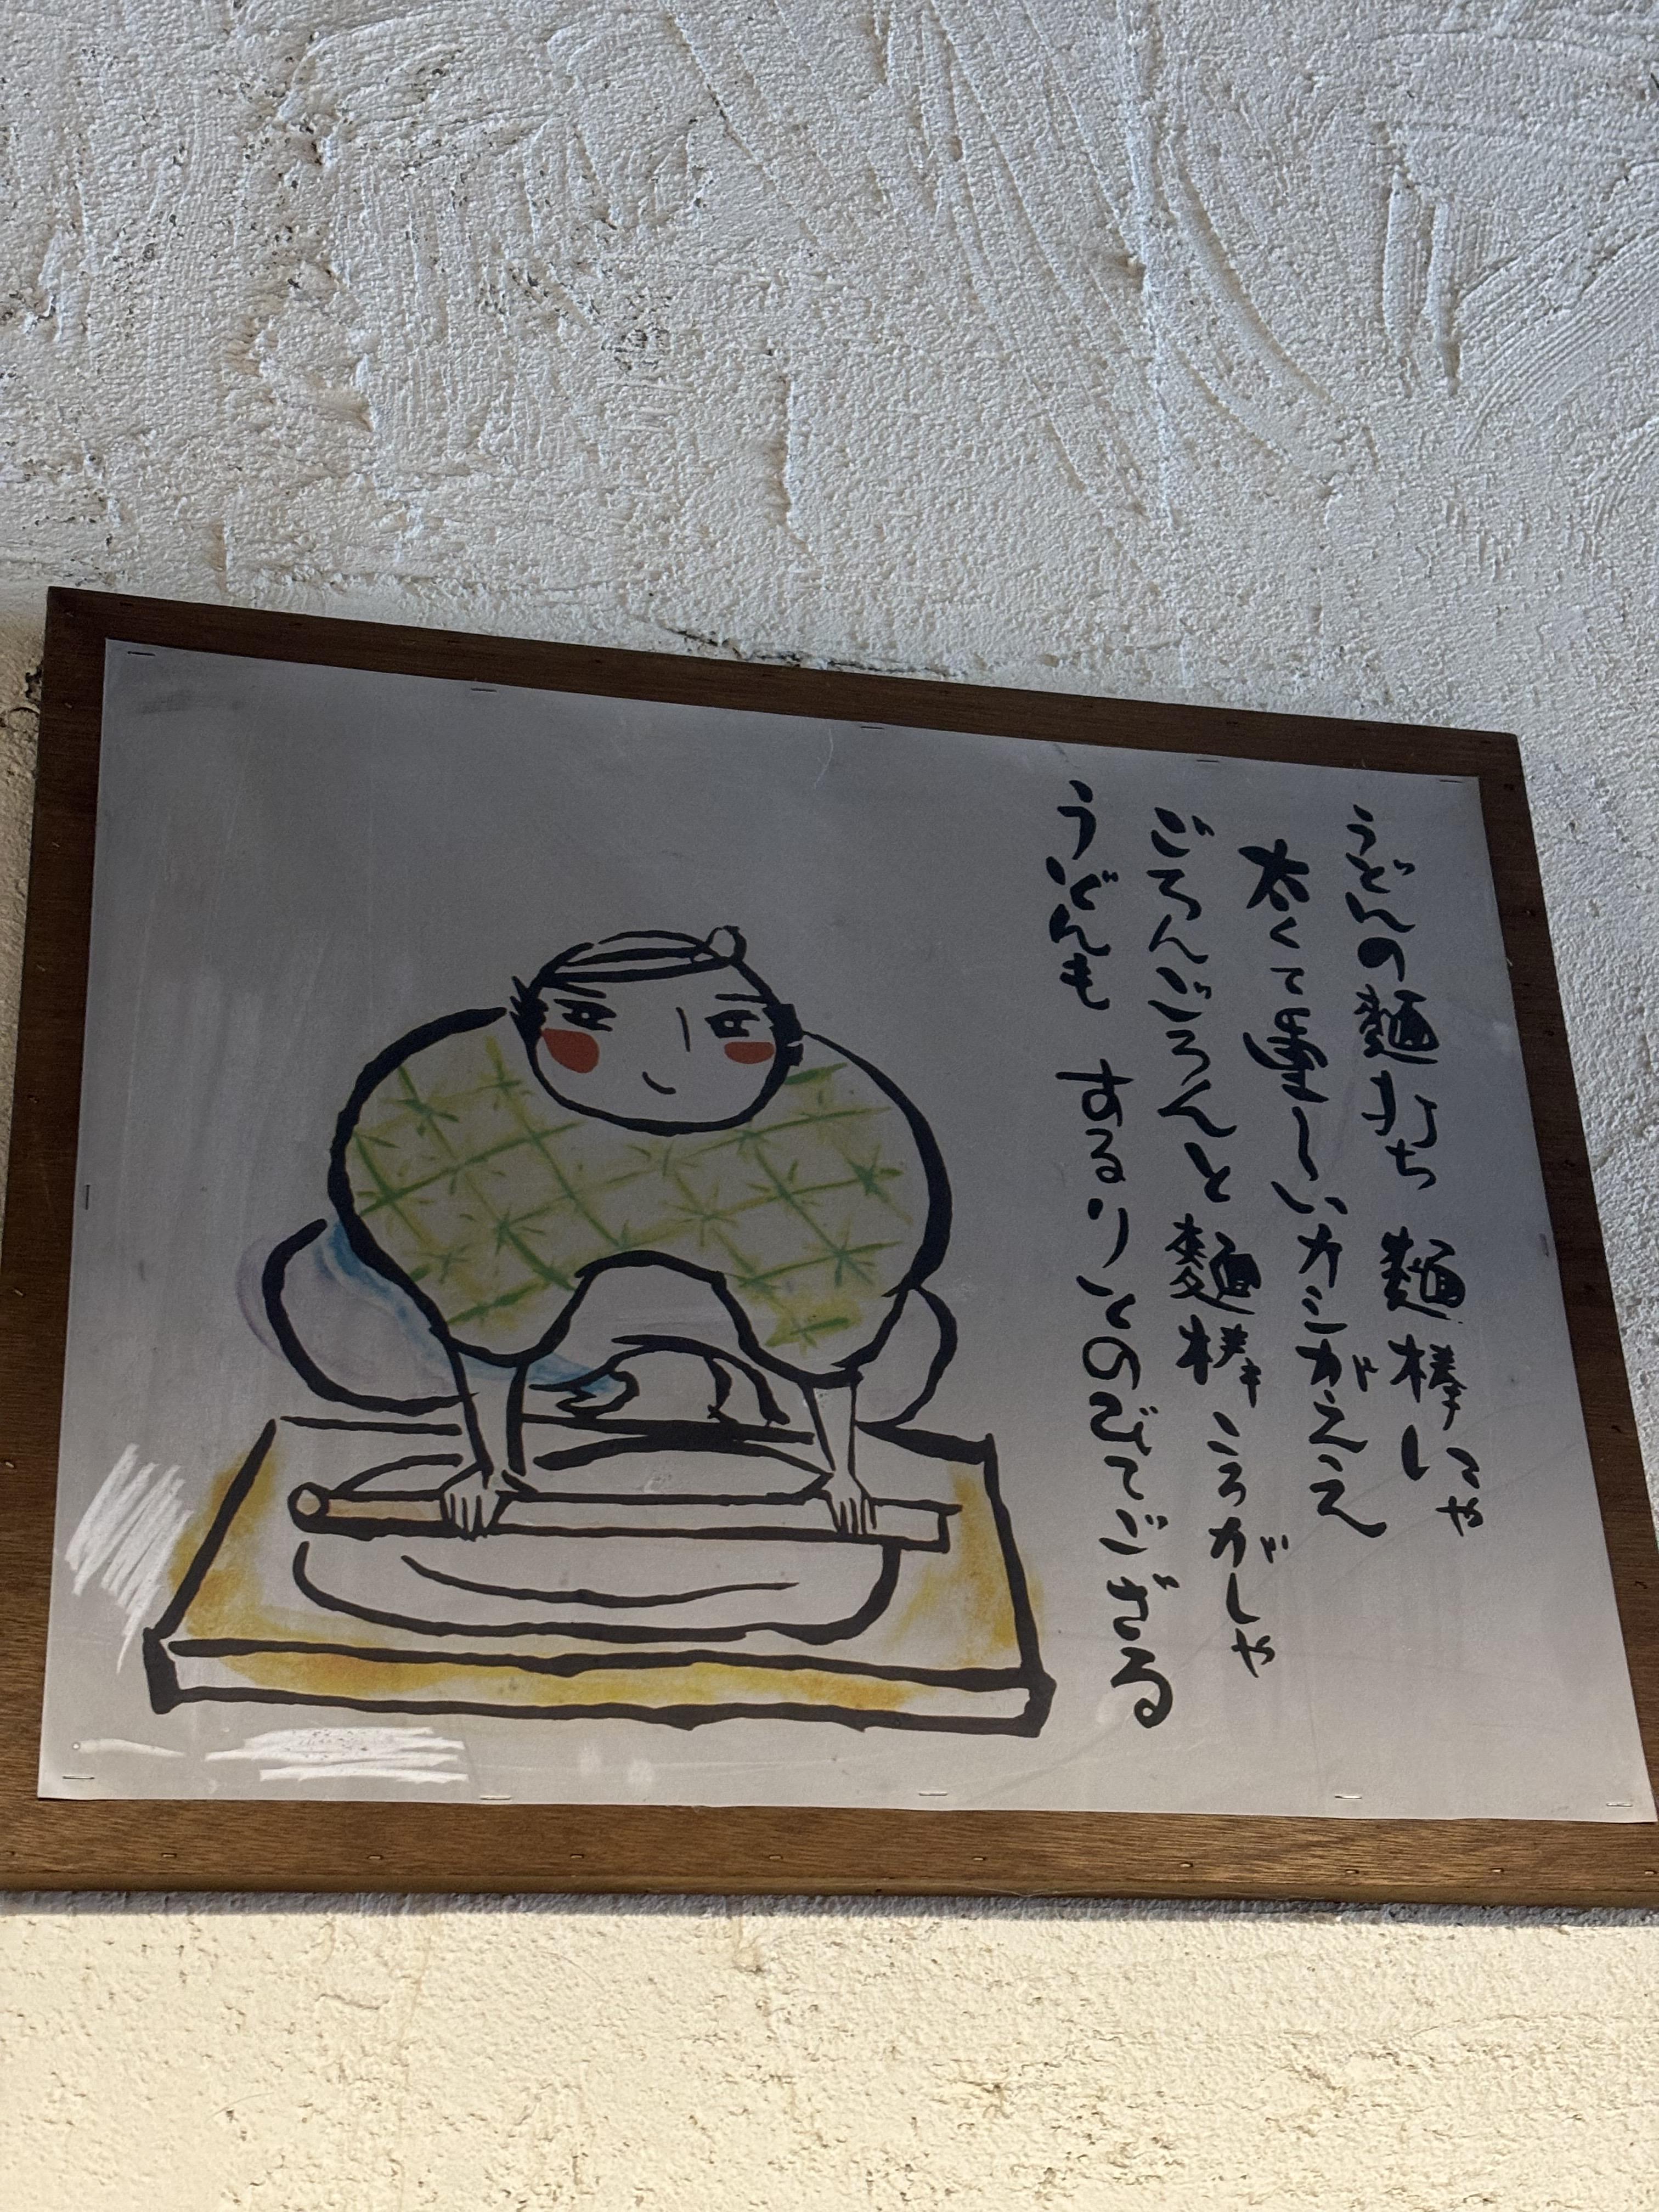 うどんの麺打ち 麺棒にゃ
太くて重ーいカシがええ
ごろんごろんと麺棒 ころがしゃ
うどんも するりとのびてござる